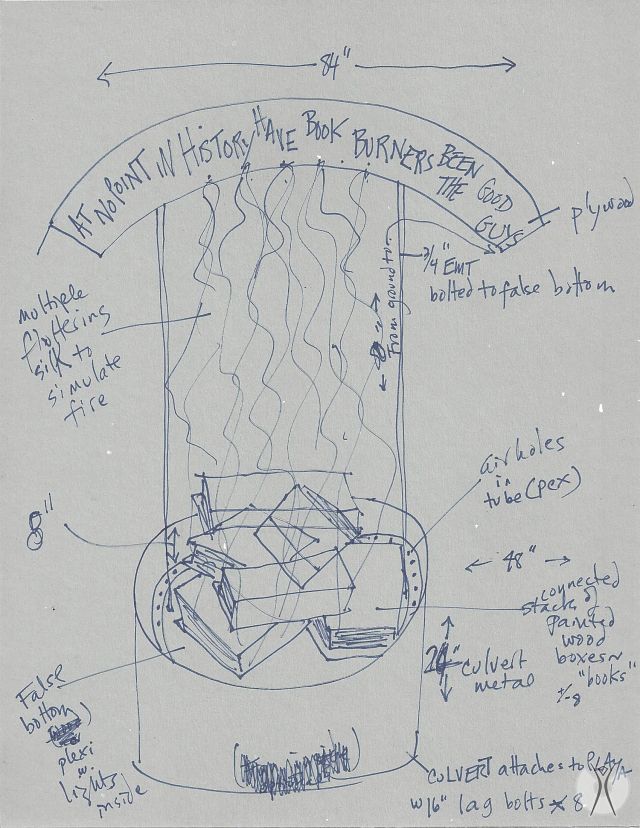 84"
AT NO POINT IN HISTORY HAVE BOOK BURNERS BEEN THE GOOD GUYS
plywood
3/4" EMT
bolted to false bottom
From ground to
multiple
fluttering
silk to
simulate
fire
airholes
in
tube (pex)
8"
48"
connected
stack of
painted
wood
boxes~
"books"
+/-8
culvert
metal
False
bottom
plexi
w.
lights
inside
CULVERT attaches to PLAYA
w/6" lag bolts x 8